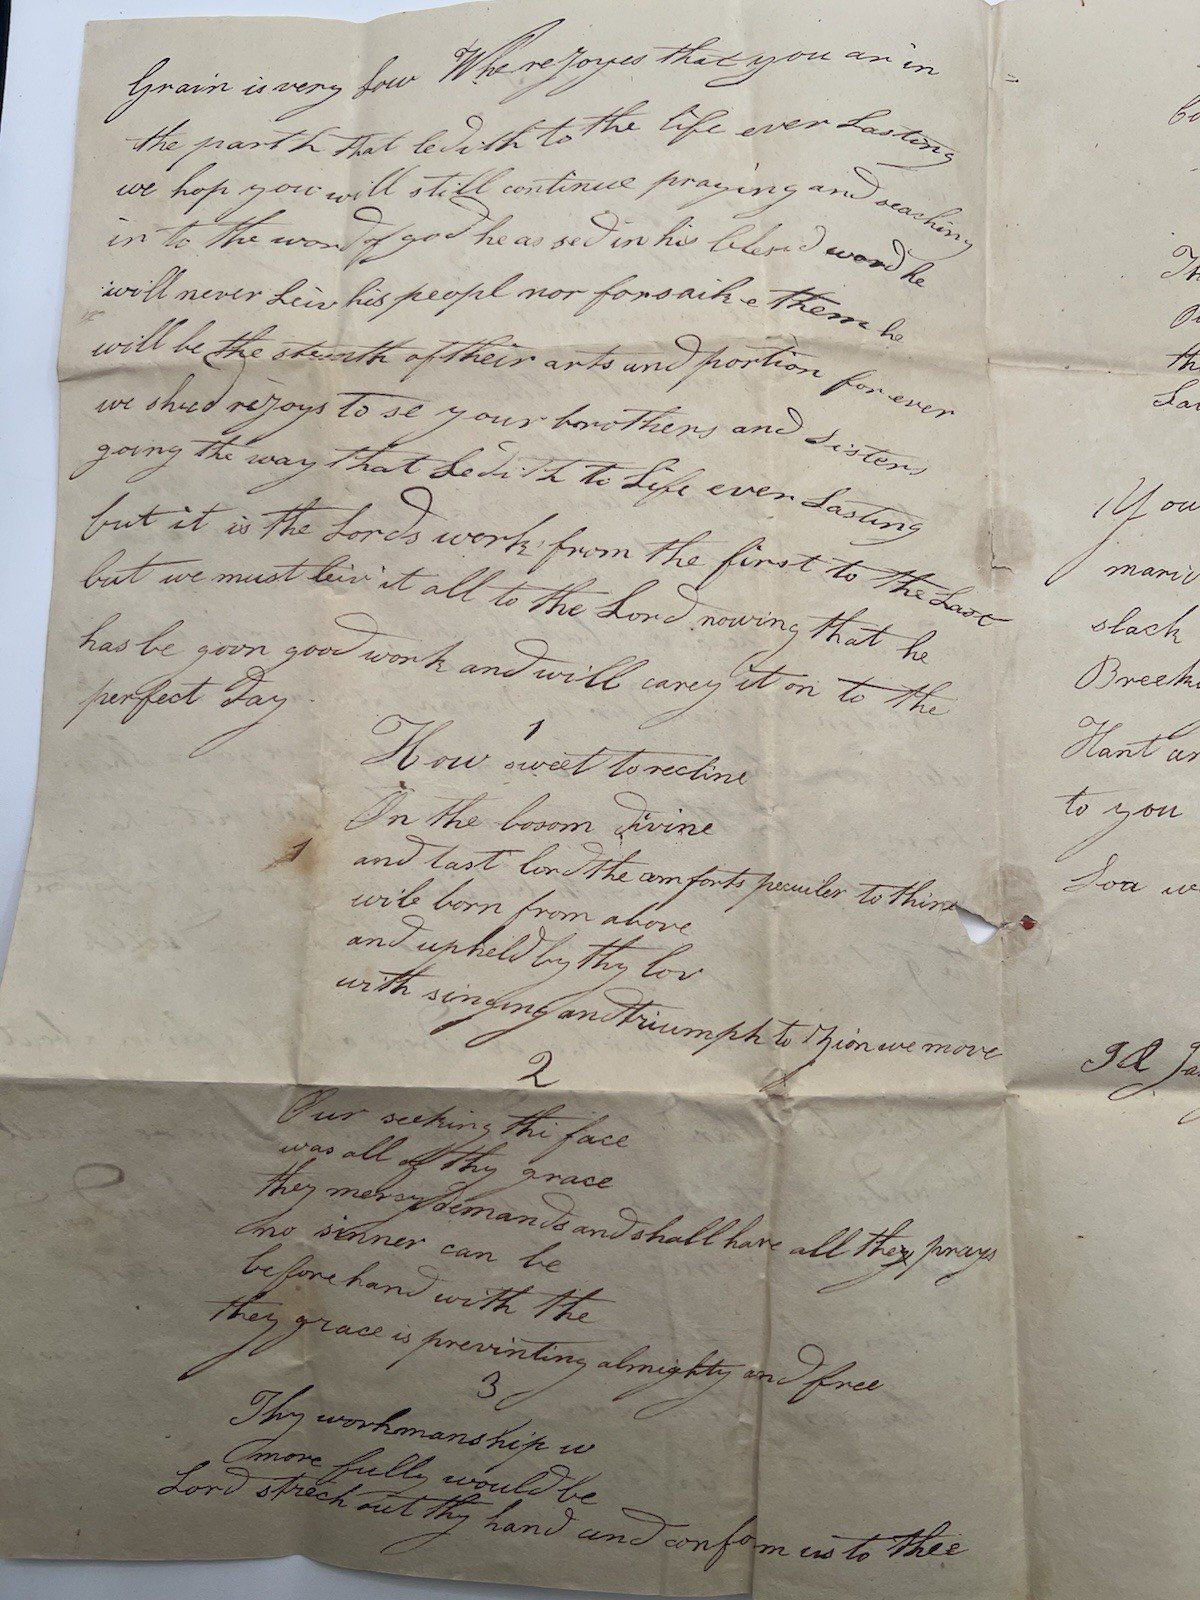 Grain is very low Whe rejoyes that you ar in
the parth that ledith to the life ever Lasting
we hop you will still continue praying and seaching
in to the word of god he as sed in his blesed word he
will never Leiv his peopl nor forsaik e them he
will be the strenth of their arts and portion for ever
we shud rejoys to se your borothers and Sisters
going the way that Ledith to Life ever Lasting
but it is the Lords work from the first to the Last
but we must leiv it all to the Lord nowing that he
has be goon good work and will carey it on to the
perfect day
1
How sweet to recline
On the bosom divine
1 and tast lord the comforts peculer to thine
wile born from above
and upheld by thy lov
with singing and triumph to Zion we move
2
Our seeking thi face
was all of thy grace
they mersy demands and shall have all they prays
no sinner can be
before hand with the
they grace is previnting almighty and free
3
Thy workmanship w
more fully would be
Lord strech out thy hand and confom us to thee
You
maric
slack
Breek
Hant ar
to you
Loa w